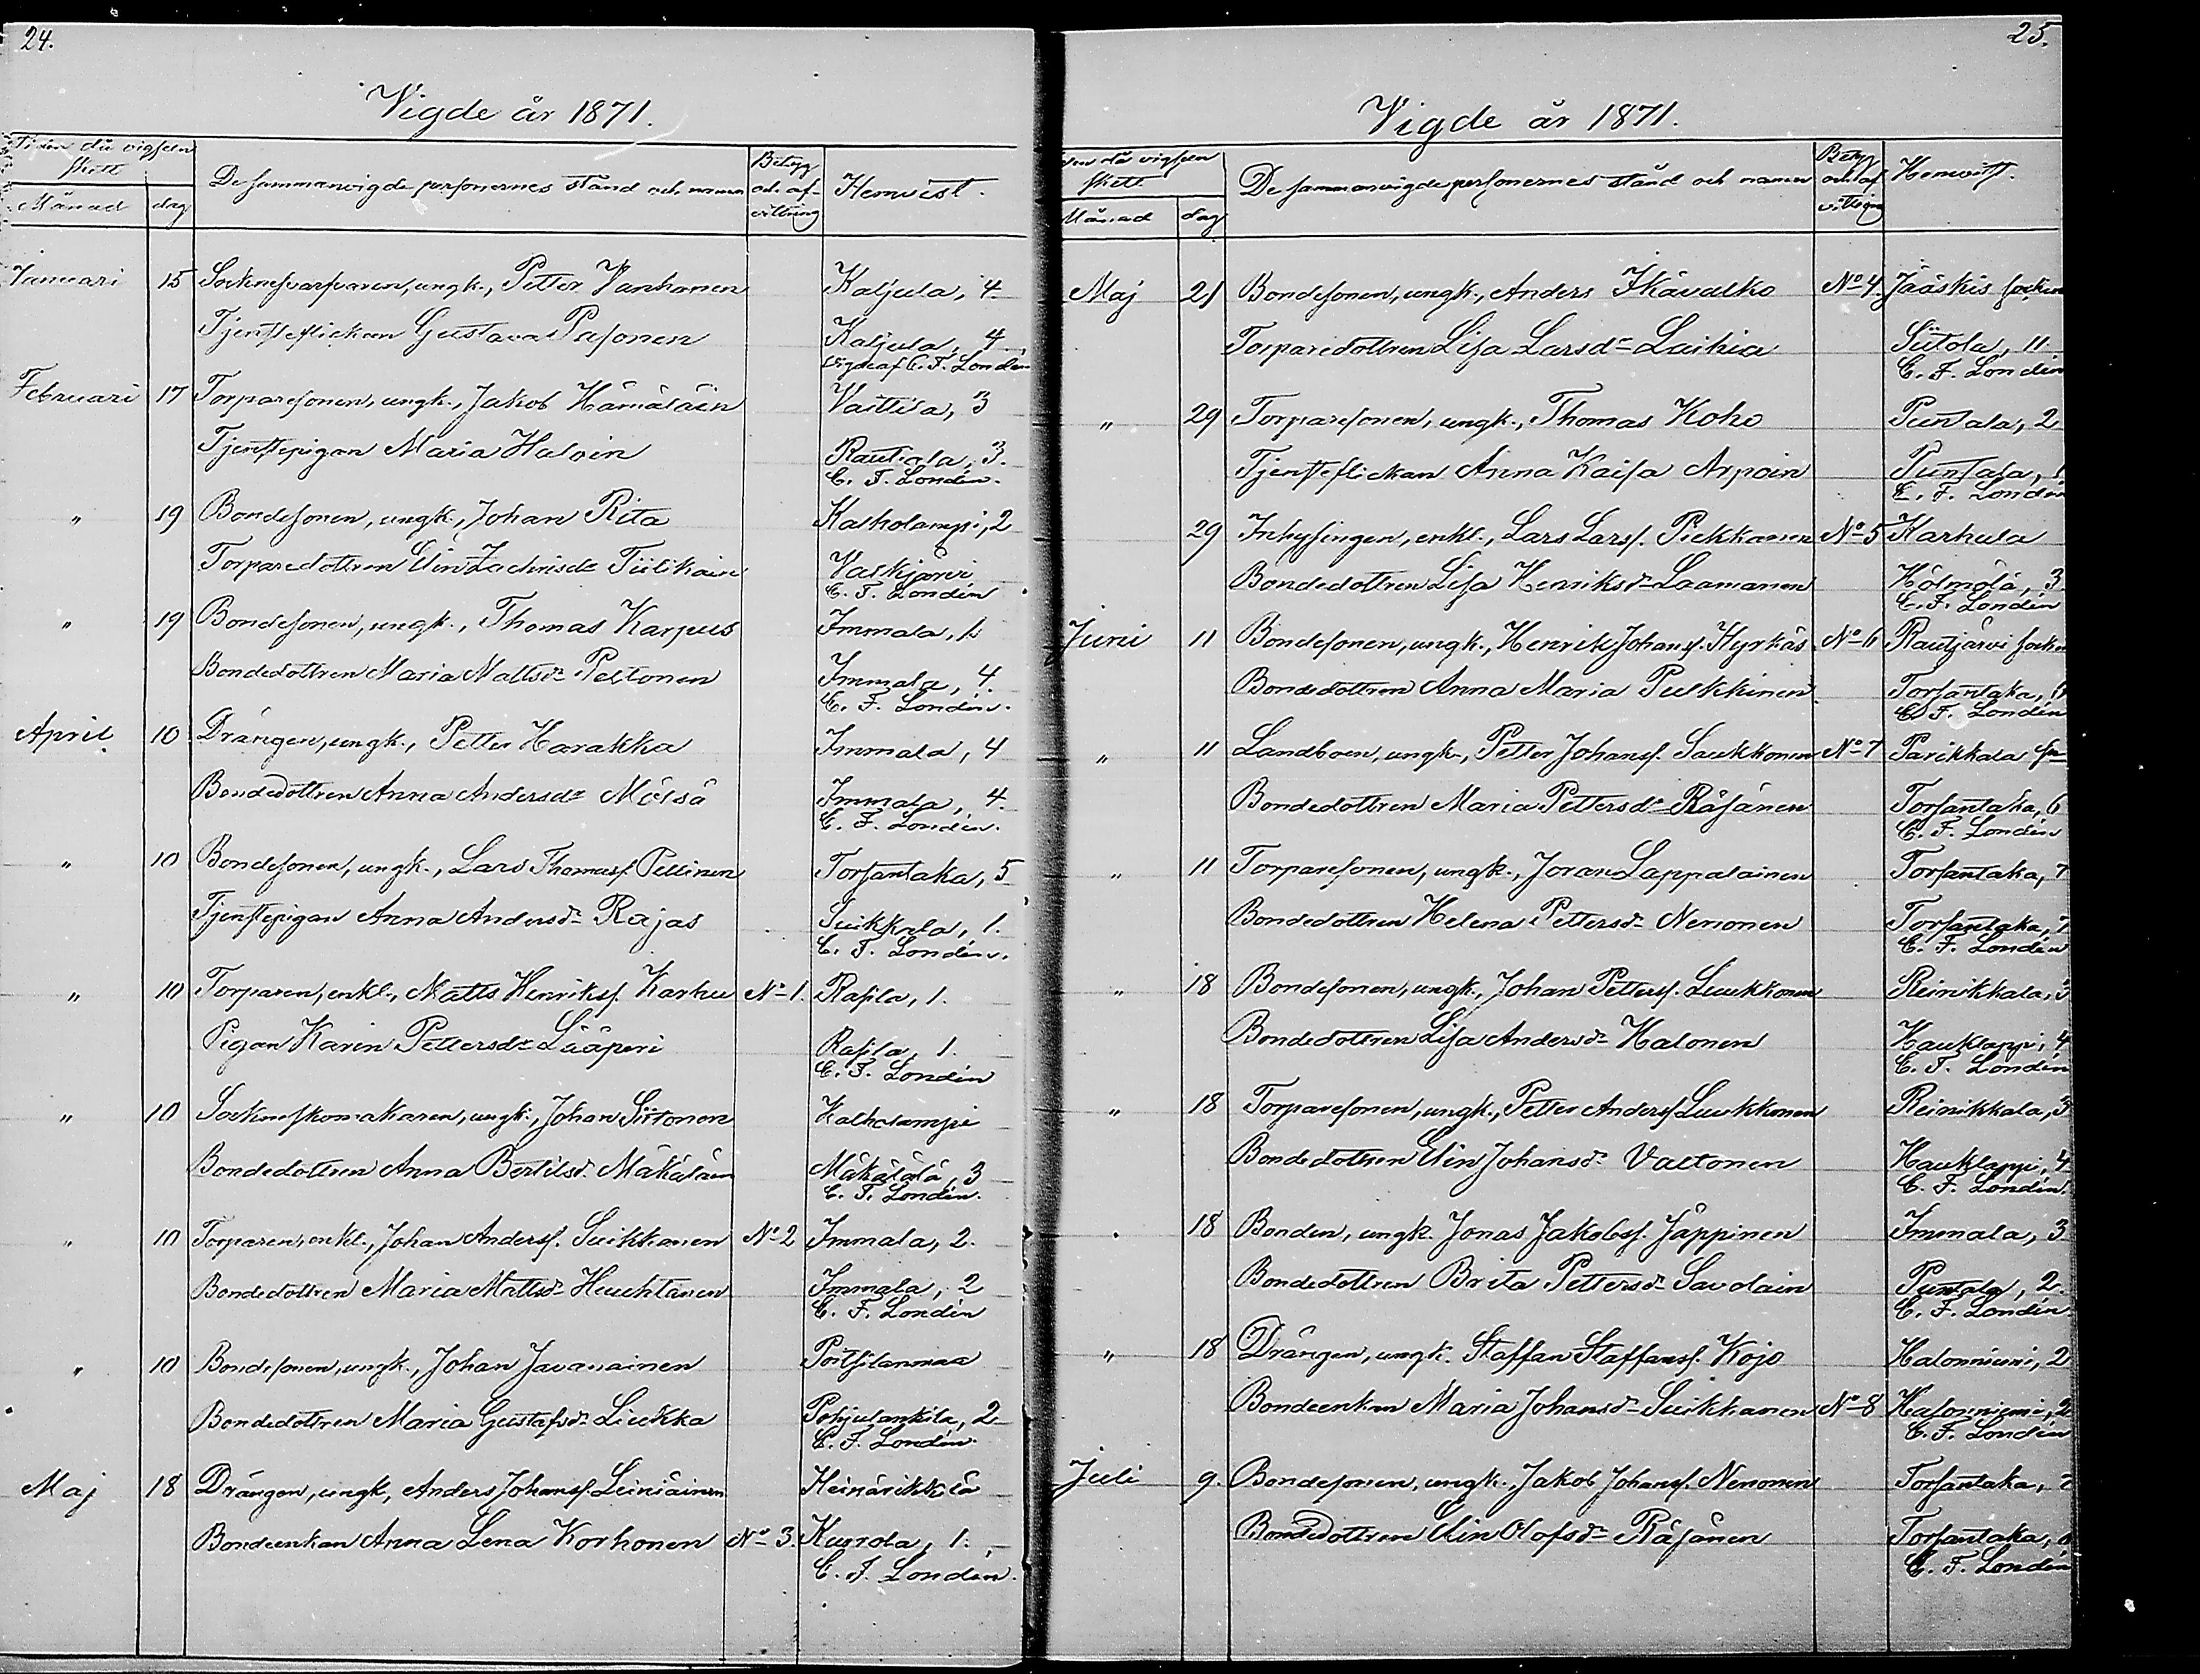 24.
Vigde år 1871.
Tiden då vigseln
skett
Månad dag
De sammanvigde personernes stånd och namn
Betyg och afvittring
Hemvist.
Januari 15 Sockneskarfvaren, ungk., Petter Vanhanen Kaljula, 4.
Tjensteflickan Gustava Pasonen Kaljula, 4
Vigde af C. F. Londén
Februari 17 Torparesonen, ungk., Jakob Hämäläin Vaittila, 3
Tjenstepigan Maria Haloin Rautiala, 3.
C. F. Londén.
" 19 Bondesonen, ungk., Johan Rita Kalholampi, 2
Torparedottren Elin Zachrisdr Tiilikain Valkjärvi
C. F. Londén
" 19 Bondesonen, ungk., Thomas Karpus Immala, 1.
Bondedottren Maria Mattsdr Peltonen Immala, 4.
C. F. Londén.
April 10 Drängen, ungk., Petter Harakka Immala, 4
Bondedottren Anna Andersdr Mölsä Immala, 4.
C. F. Londén.
" 10 Bondesonen, ungk., Lars Thomass. Pellinen Torsantaka, 5
Tjenstepigan Anna Andersdr Rajas Suikkala, 1.
C. F. Londén.
" 10 Torparen, enkl., Matts Henrikss. Karhu No 1. Rasila, 1.
Pigan Karin Pettersdr Lääperi Rasila, 1.
C. F. Londén
" 10 Sockneskomakaren, ungk., Johan Siitonen Kalholampi
Bondedottren Anna Bertilsdr Mäkäläin Mäkälälä, 3
C. F. Londén.
" 10 Torparen, enkl., Johan Anderss. Suikkanen No 2 Immala, 2.
Bondedottren Maria Mattsdr Heuchtanen Immala, 2
C. F. Londén
" 10 Bondesonen, ungk., Johan Javanainen Portsilanmaa
Bondedottren Maria Gustafsdr Liukka Pohjulankila, 2
C. F. Londén.
Maj 18 Drängen, ungk., Anders Johanss. Leiniäinen Heinärikkilä
Bondeenkan Anna Lena Korhonen No 3. Kurrola, 1.
C. F. Londén.
25.
Vigde år 1871.
den då vigseln
skett
Månad dag
De sammanvigde personernes stånd och namn
Betyg och afvittring
Hemvist.
Maj 21 Bondesonen, ungk., Anders Ikävalko No 4. Jääskis socken
Torparedottren Lisa Larsdr Laihia Siitola, 11
C. F. Londén
" 29 Torparesonen, ungk., Thomas Koho Puntala, 2
Tjensteflickan Anna Kaisa Arpoin Puntala, 1
C. F. Londén
29 Inhysingen, enkl., Lars Larss. Piekkanen No 5 Karhula
Bondedottren Lisa Henriksdr Laamanen Hölmölä, 3
C. F. Londén
Juni 11 Bondesonen, ungk., Henrik Johanss. Hyrkäs No 6 Rautjärvi socken
Bondedottren Anna Maria Pulkkinen Torsantaka,
C. F. Londén
" 11 Landboen, ungk., Petter Johanss. Saukkonen No 7 Parikkala sn
Bondedottren Maria Pettersdr Räsänen Torsantaka, 6
C. F. Londén
" 11 Torparesonen, ungk., Joran Lappalainen Torsantaka, 7
Bondedottren Helena Pettersdr Nenonen Torsantaka, 7
C. F. Londén
" 18 Bondesonen, ungk., Johan Petterss. Luukkonen Reinikkala, 3
Bondedottren Lisa Andersdr Halonen Hauklappi, 4
C. F. Londén
" 18 Torparesonen, ungk., Petter Anderss. Luukkonen Reinikkala, 3
Bondedottren Elin Johansdr Valtonen Hauklappi, 4
C. F. Londén.
" 18 Bonden, ungk. Jonas Jakobss. Jäppinen Immala, 3
Bondedottren Brita Pettersdr Savolain Puntala, 2.
C. F. Londén.
" 18 Drängen, ungk. Staffan Staffanss. Kojo Halonniemi, 2
Bondeenkan Maria Johansdr Suikkanen No 8 Hasonniemi, 2
C. F. Londén
Juli 9. Bondesonen, ungk., Jakob Johanss. Nenonen Torsantaka, 7
Bondedottren Elin Olofsdr Räsänen Torsantaka,
C. F. Londén